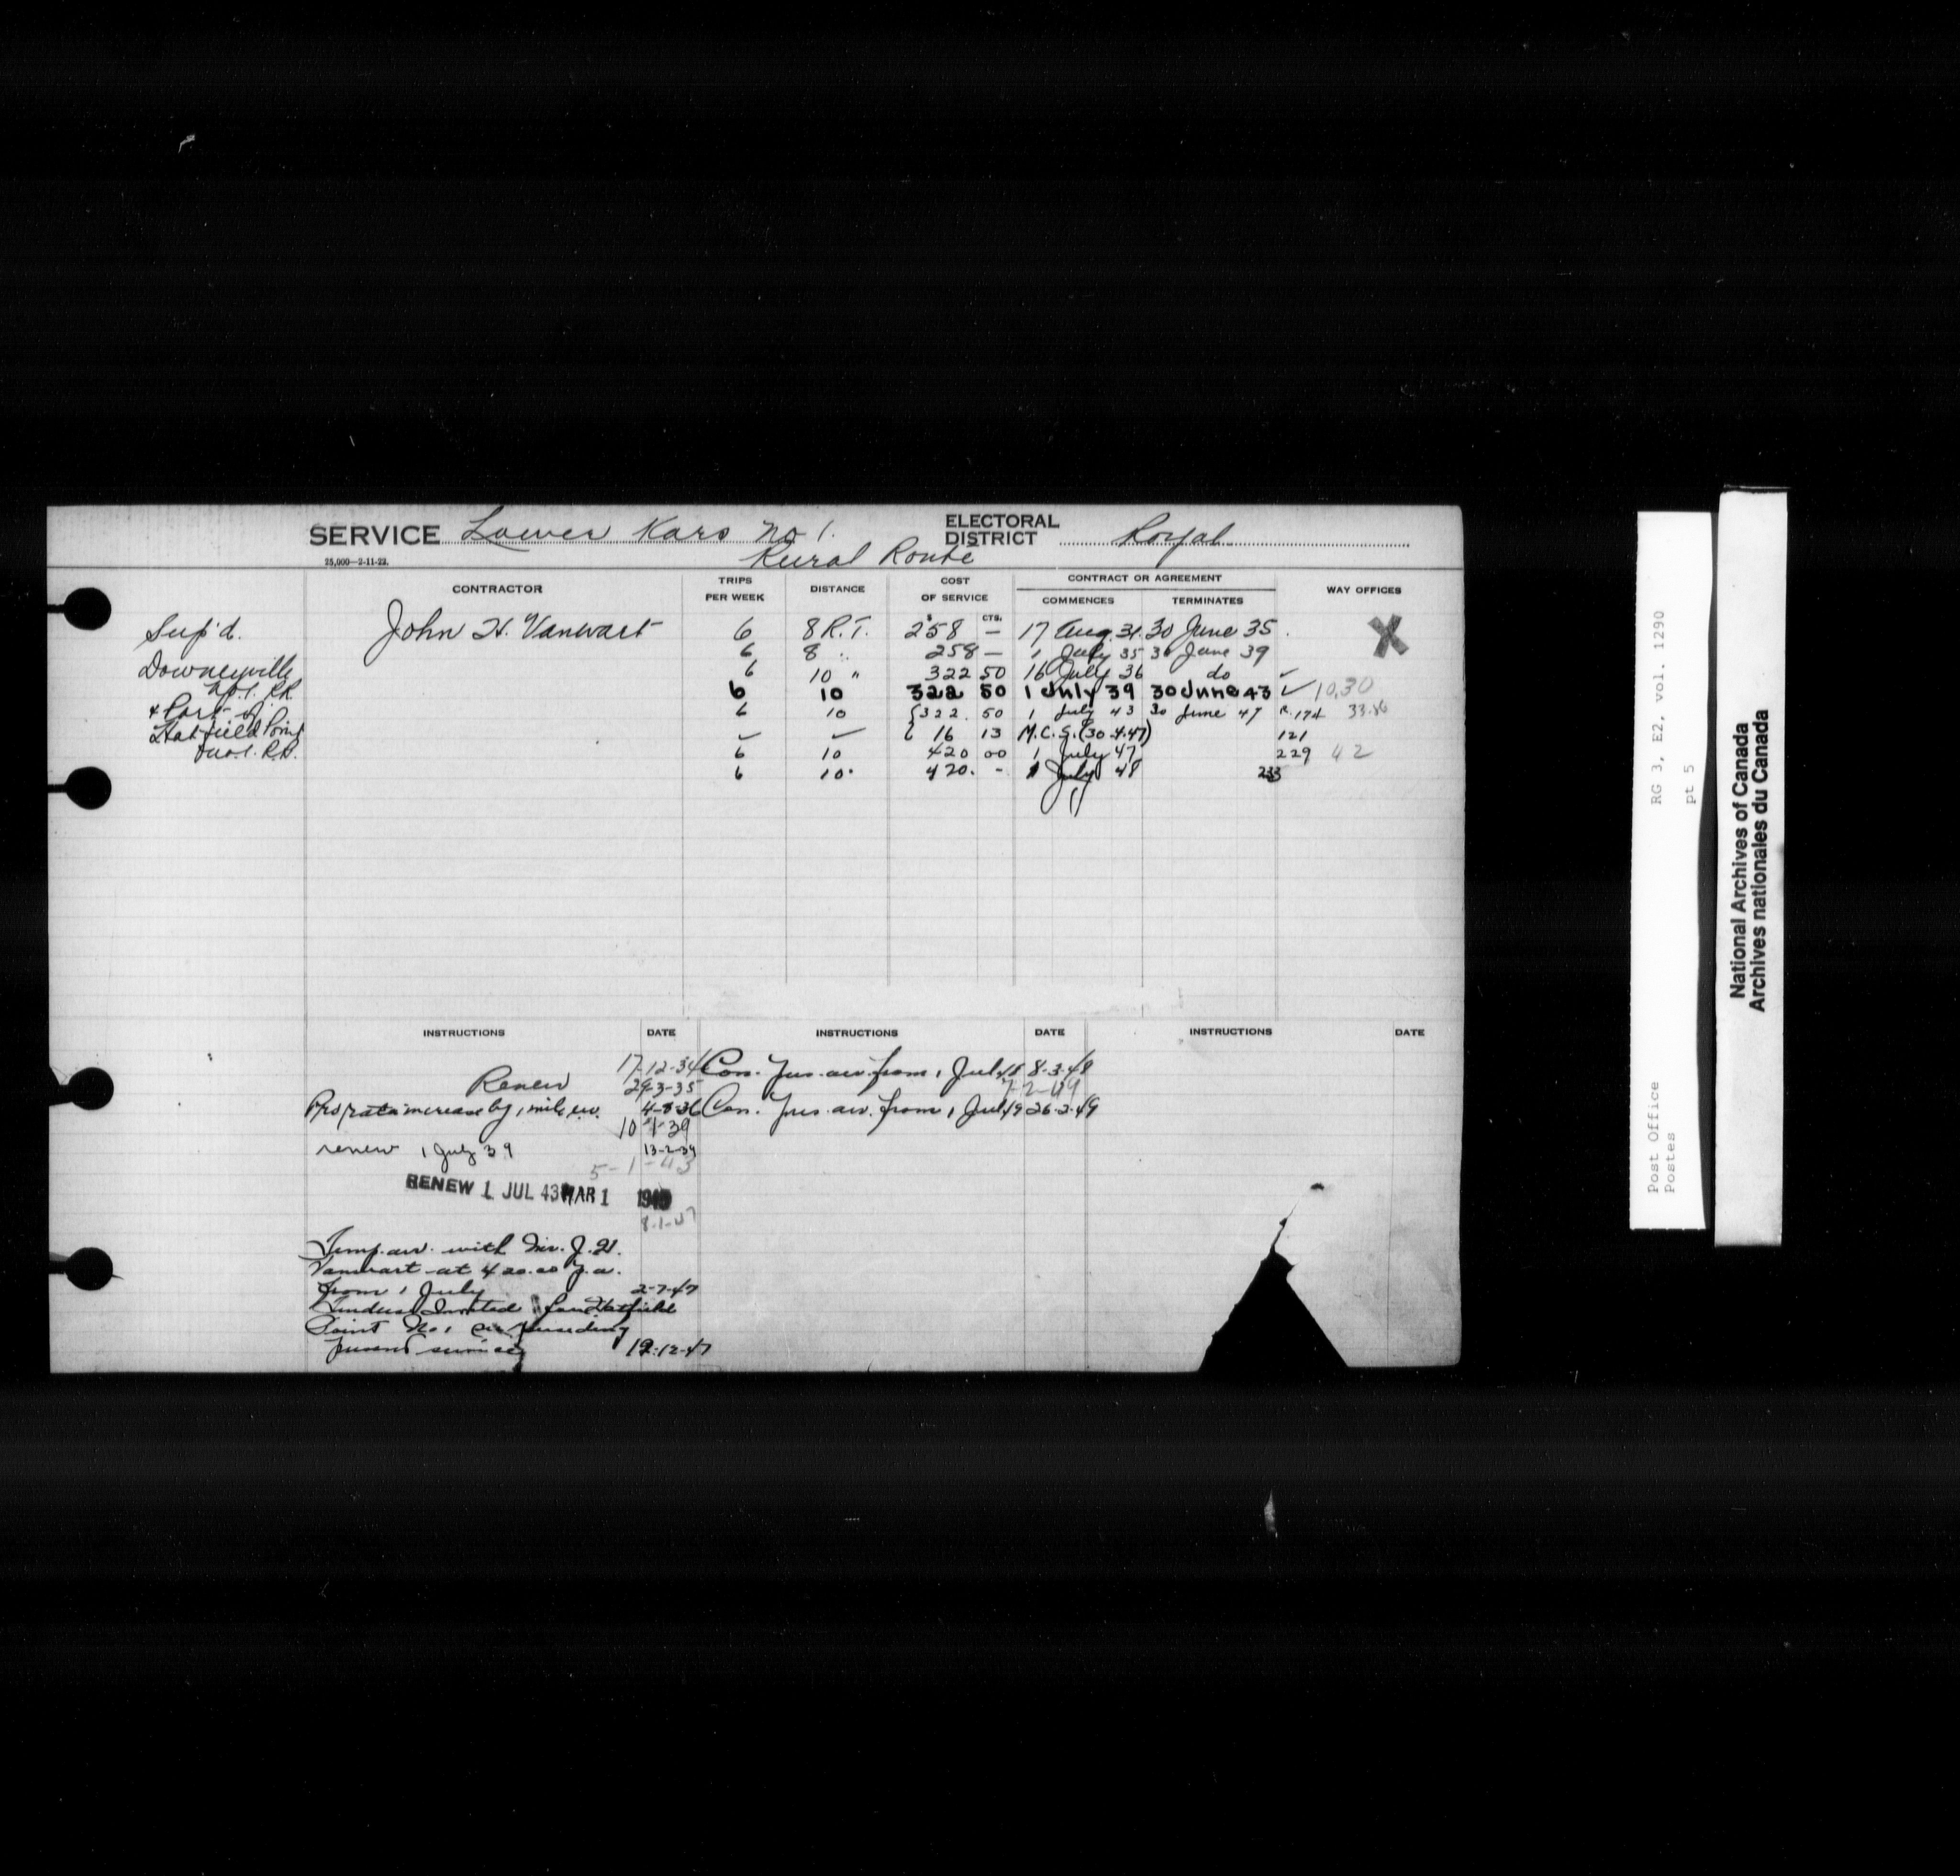 SERVICE Lower Kars No 1.
Rural Route
ELECTORAL DISTRICT Royal
25,000—2-11-22.
CONTRACTOR TRIPS PER WEEK DISTANCE COST OF SERVICE CONTRACT OR AGREEMENT WAY OFFICES
COMMENCES TERMINATES
$ CTS.
Sup'd. John H. Vanwart 6 8 R.T. 258 — 17 Aug. 31. 30 June 35. X
6 8 " 258 — 1 July 35 30 June 39
Downeyville 6 10 " 322 50 16 July 36 do ✓
No. 1. RR 6 10 322 50 1 July 39 30 June 43 ✓ 10.30
& Part of 6 10 322. 50 1 July 43 30 June 47 174 33.86
Hatfield Point ✓ — 16 13 M.C.S. (30.4.47) 121
No. 1. RR. 6 10 420 00 1 July 47 229 42
6 10. 420. - 1 July 48 233
INSTRUCTIONS DATE INSTRUCTIONS DATE INSTRUCTIONS DATE
17-12-34 Con. from 1 July 48 8-3-48
Renew 29-3-35 7-2-49
Pro rata increase by 1 mile 4-8-36 Con. from 1 July 49 26-2-49
10 1-39
renew 1 July 39 13-2-39
5-1-43
RENEW 1 JUL 43 MAR 1
8-1-47
Temp. arr. with Mr. J. H.
Vanwart at 420.00 p.a.
from 1 July 2-7-47
Tenders Invited for Hatfield
Point No. 1
present service 19-12-47
RG 3, E2, vol. 1290
pt 5
Post Office
Postes
National Archives of Canada
Archives nationales du Canada